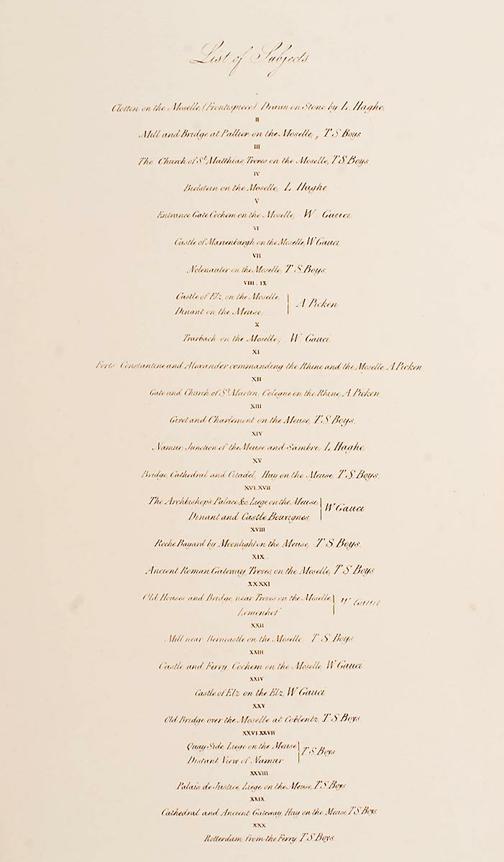 List of Subjects
Clotten on the Moselle, (Frontispiece) Drawn on Stone by L. Haghe.
II
Mill and Bridge at Pallier, on the Moselle, T S Boys.
III
The Church of St. Matthias, Treves on the Moselle, T S Boys.
IV
Beilstein on the Moselle, L Haghe
V
Entrance Gate Cochem on the Moselle, W Gauci
VI
Castle of Marienburgh on the Moselle, W Gauci
VII
on the Moselle, T S Boys.
VIII. IX
Castle of Elz, on the Moselle.
Dinant on the Meuse,
A Picken
X
Trarbach on the Moselle, W Gauci
XI
Forts Constantine and Alexander commanding the Rhine and the Moselle, A Picken
XII
Gate and Church of St. Martin, Cologne on the Rhine, A Picken
XIII
Givet and Charlemont on the Meuse, T S Boys.
XIV
Namur, Junction of the Meuse and Sambre, L Haghe.
XV
Bridge, Cathedral and Citadel, Huy on the Meuse, T S Boys.
XVI XVII
The Archbishop's Palace &c. Liege on the Meuse
Denant and Castle Bouvignes
W Gauci
XVIII
Roche Bayard by Moonlight on the Meuse, T S Boys.
XIX.
Ancient Roman Gateway, Treves, on the Moselle, T S Boys
XX XXI
Old Houses and Bridge, near Treves on the Moselle
W Gauci
XXII
Mill near Berncastle on the Moselle T S Boys
XXIII
Castle and Ferry, Cochem on the Moselle W Gauci
XXIV
Castle of Elz on the Elz, W Gauci
XXV
Old Bridge over the Moselle at Coblentz, T S Boys.
XXVI XXVII
Quay-Side, Liege on the Meuse
Distant View of Namur
T S Boys
XXVIII
Palais de Justice, Liege on the Meuse, T S Boys
XXIX
Cathedral and Ancient Gateway, Huy on the Meuse T S Boys
XXX
Rotterdam, from the Ferry T S Boys.